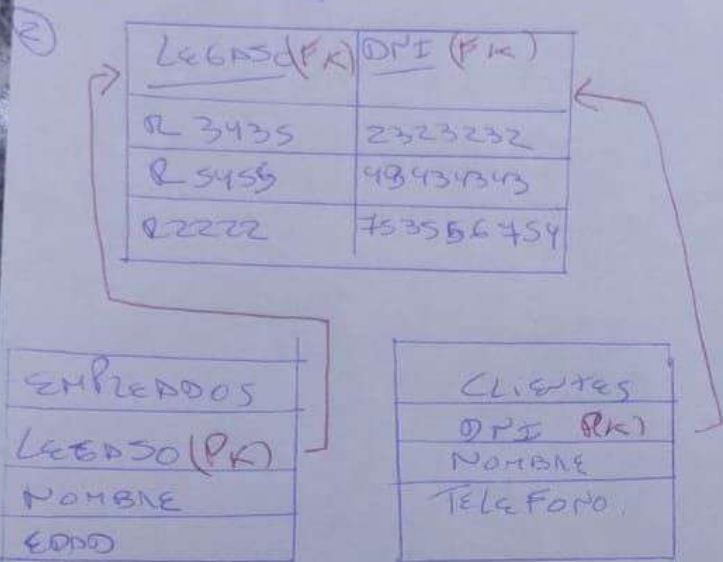 2
LEGAJO (FK) DNI (FK)
R 3435 2323232
R 5455 49434343
R2222 753556754
EMPLEADOS
LEGAJO (PK)
NOMBRE
EDAD
CLIENTES
DNI (PK)
NOMBRE
TELEFONO.